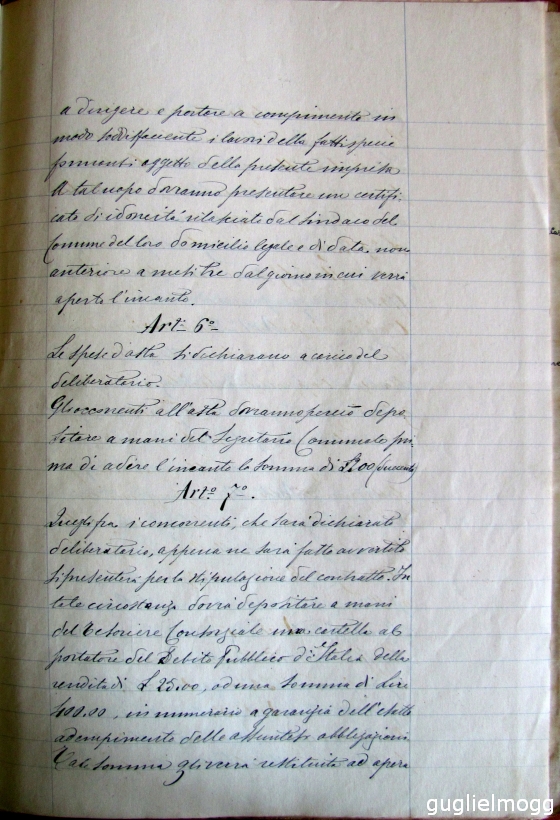 a dirigere e portare a compimento in
modo soddisfacente i lavori della fattispecie
formanti oggetto della presente impresa
A tal uopo dovranno presentare un certifi-
cato di idoneità rilasciato dal Sindaco del
Comune del loro domicilio legale e di data non
anteriore a mesi tre dal giorno in cui verrà
aperto l'incanto.
Art. 6º
Le spese d'asta si dichiarano a carico del
deliberatario.
Gli occorrenti all'asta dovranno perciò depo-
sitare a mani del Segretario Comunale pri-
ma di adire l'incanto la somma di £200 (duecento)
Artº 7º.
Quegli fra i concorrenti, che sarà dichiarato
deliberatario, appena ne sarà fatto avvertito
si presenterà per la stipulazione del contratto. In
tale circostanza dovrà depositare a mani
del Tesoriere Consorziale una cartella al
portatore del Debito Pubblico d'Italia della
rendita di £ 25.00, od una somma di lire
400.00, in numerario a garanzia dell'esatto
adempimento delle assuntesi obbligazioni
Tale somma gli verrà restituita ad opera
guglielmogg